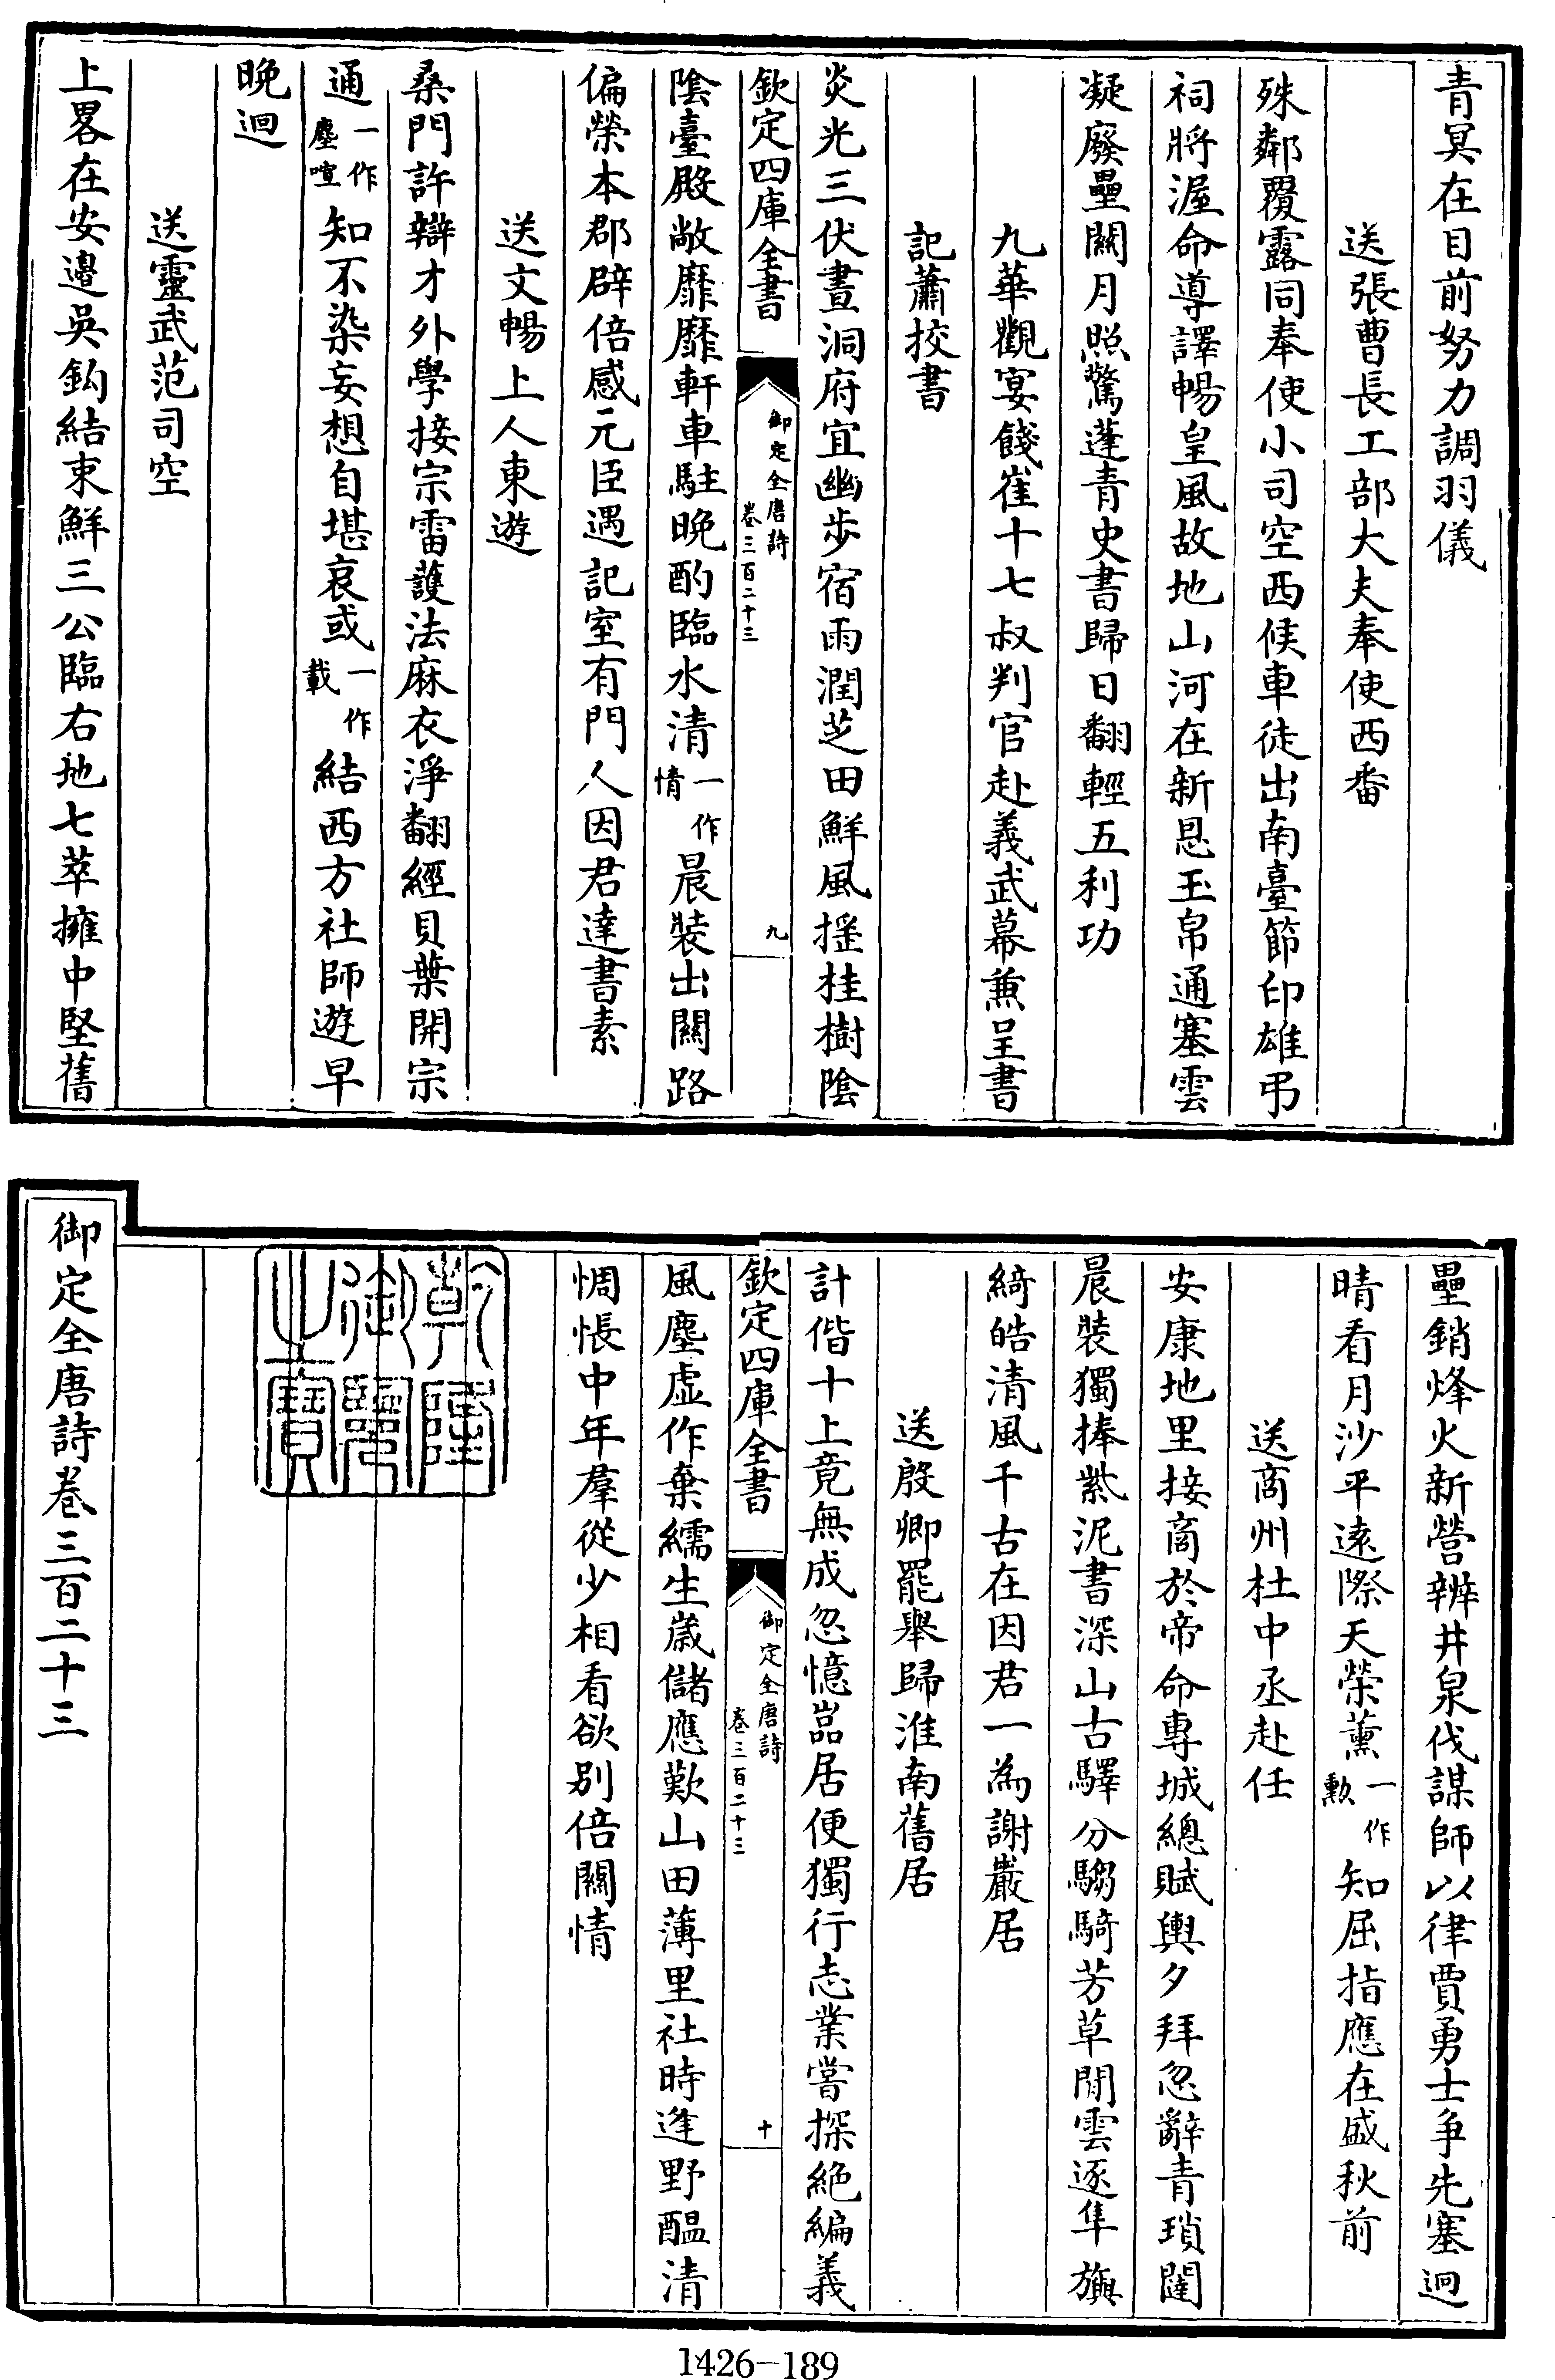 青冥在目前努力調羽儀
送張曹長工部大夫奉使西番
殊鄰覆露同奉使小司空西候車徒出南臺節印雄弔
祠將渥命導譯暢皇風故地山河在新恩玉帛通塞雲
凝廢壘關月照驚蓬青史書歸日翻輕五利功
九華觀宴餞崔十七叔判官赴義武幕兼呈書
記蕭校書
炎光三伏晝洞府宜幽步宿雨潤芝田鮮風搖桂樹陰
欽定四庫全書
御定全唐詩
卷三百二十三
九
陰臺殿敞靡靡軒車駐晚酌臨水清一作情晨裝出關路
偏榮本郡辟倍感元臣遇記室有門人因君達書素
送文暢上人東遊
桑門許辯才外學接宗雷護法麻衣淨翻經貝葉開宗
通一作塵喧知不染妄想自堪哀或一作載結西方社師遊早
晚迴
送靈武范司空
上畧在安邉吳鈎結束鮮三公臨右地七萃擁中堅舊
壘銷烽火新營辨井泉伐謀師以律賈勇士爭先塞迥
晴看月沙平遠際天榮薰一作勲知屈指應在盛秋前
送商州杜中丞赴任
安康地里接商於帝命專城總賦輿夕拜忽辭青瑣闥
晨裝獨捧紫泥書深山古驛分騶騎芳草閒雲逐隼旟
綺皓清風千古在因君一為謝巖居
送殷卿罷舉歸淮南舊居
計偕十上竟無成忽憶嵓居便獨行志業嘗探絶編義
欽定四庫全書
御定全唐詩
卷三百二十三
十
風塵虛作棄繻生歲儲應歎山田薄里社時逢野醖清
惆悵中年羣從少相看欲別倍關情
乾隆
御覽
之寶
御定全唐詩卷三百二十三
1426-189